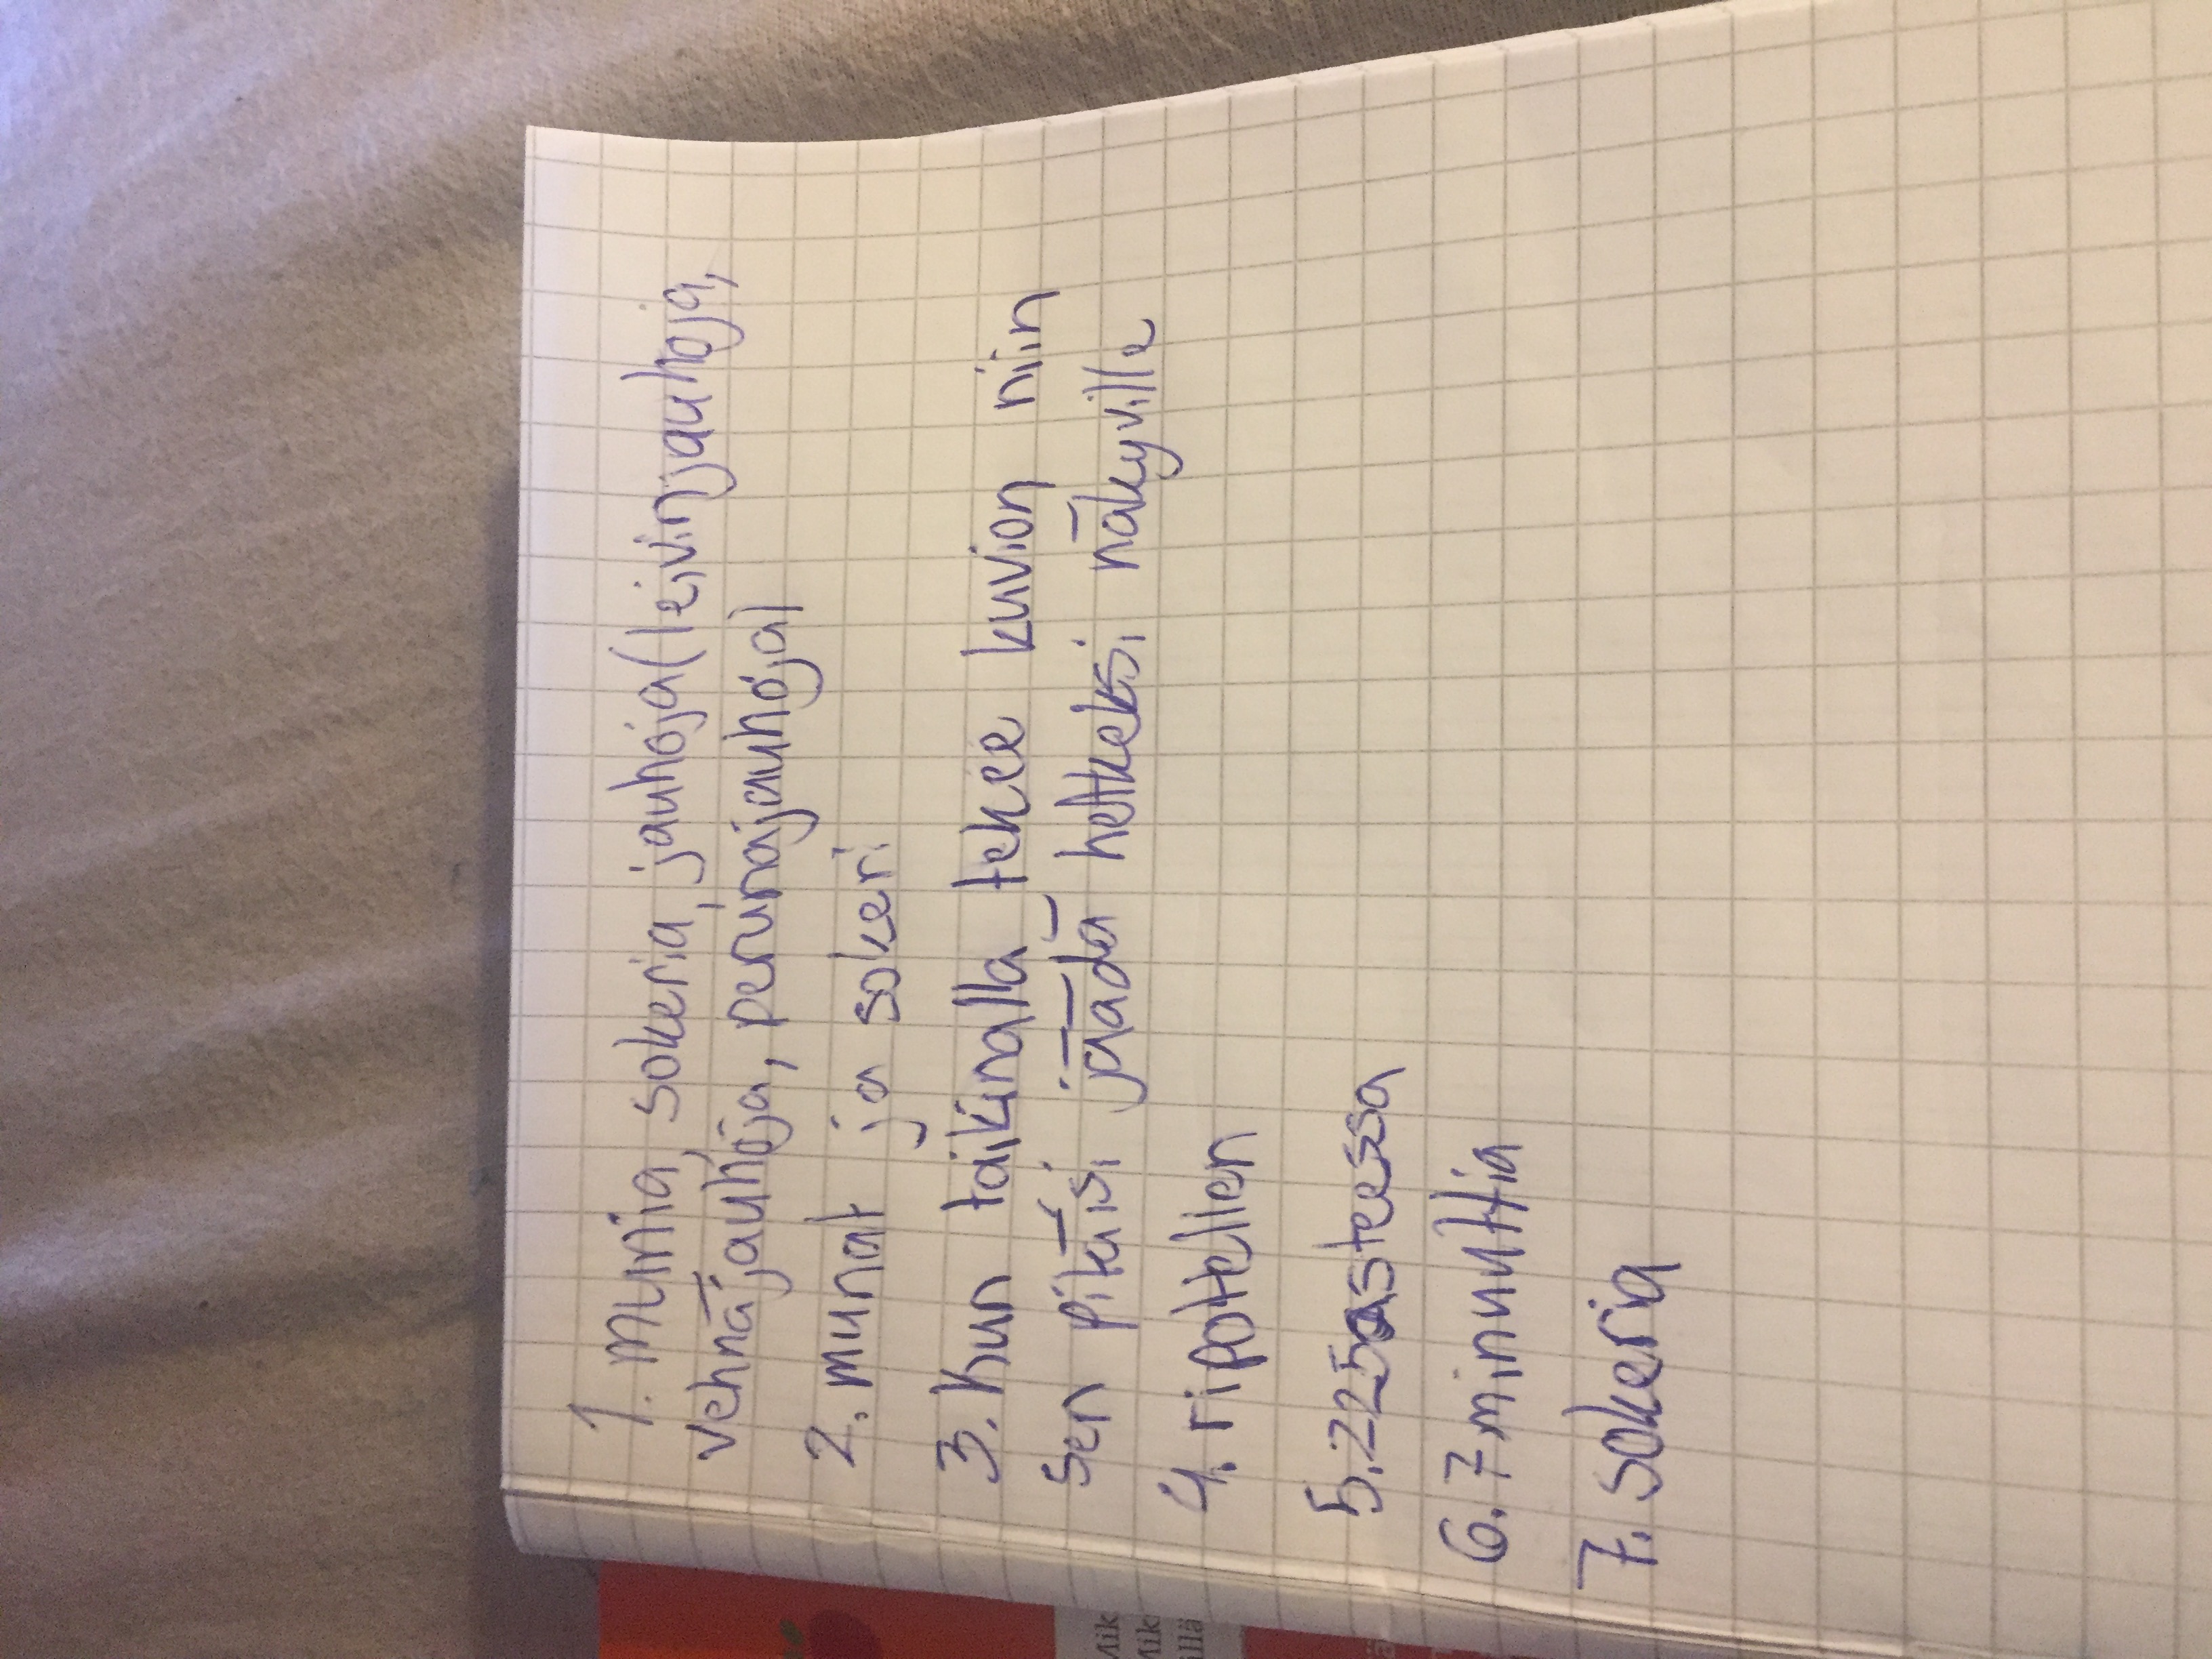 1. munia, sokeria, jauhoja(leivinjauhoja,
vehnäjauhoja, perunajauhoja)
2. munat ja sokeri
3. Kun taikinalla tekee kuvion niin
sen pitäisi jäädä hetkeksi näkyville
4. ripotellen
5. 225asteessa
6. 7 minuuttia
7. sokeria
Mik
Mik
llä